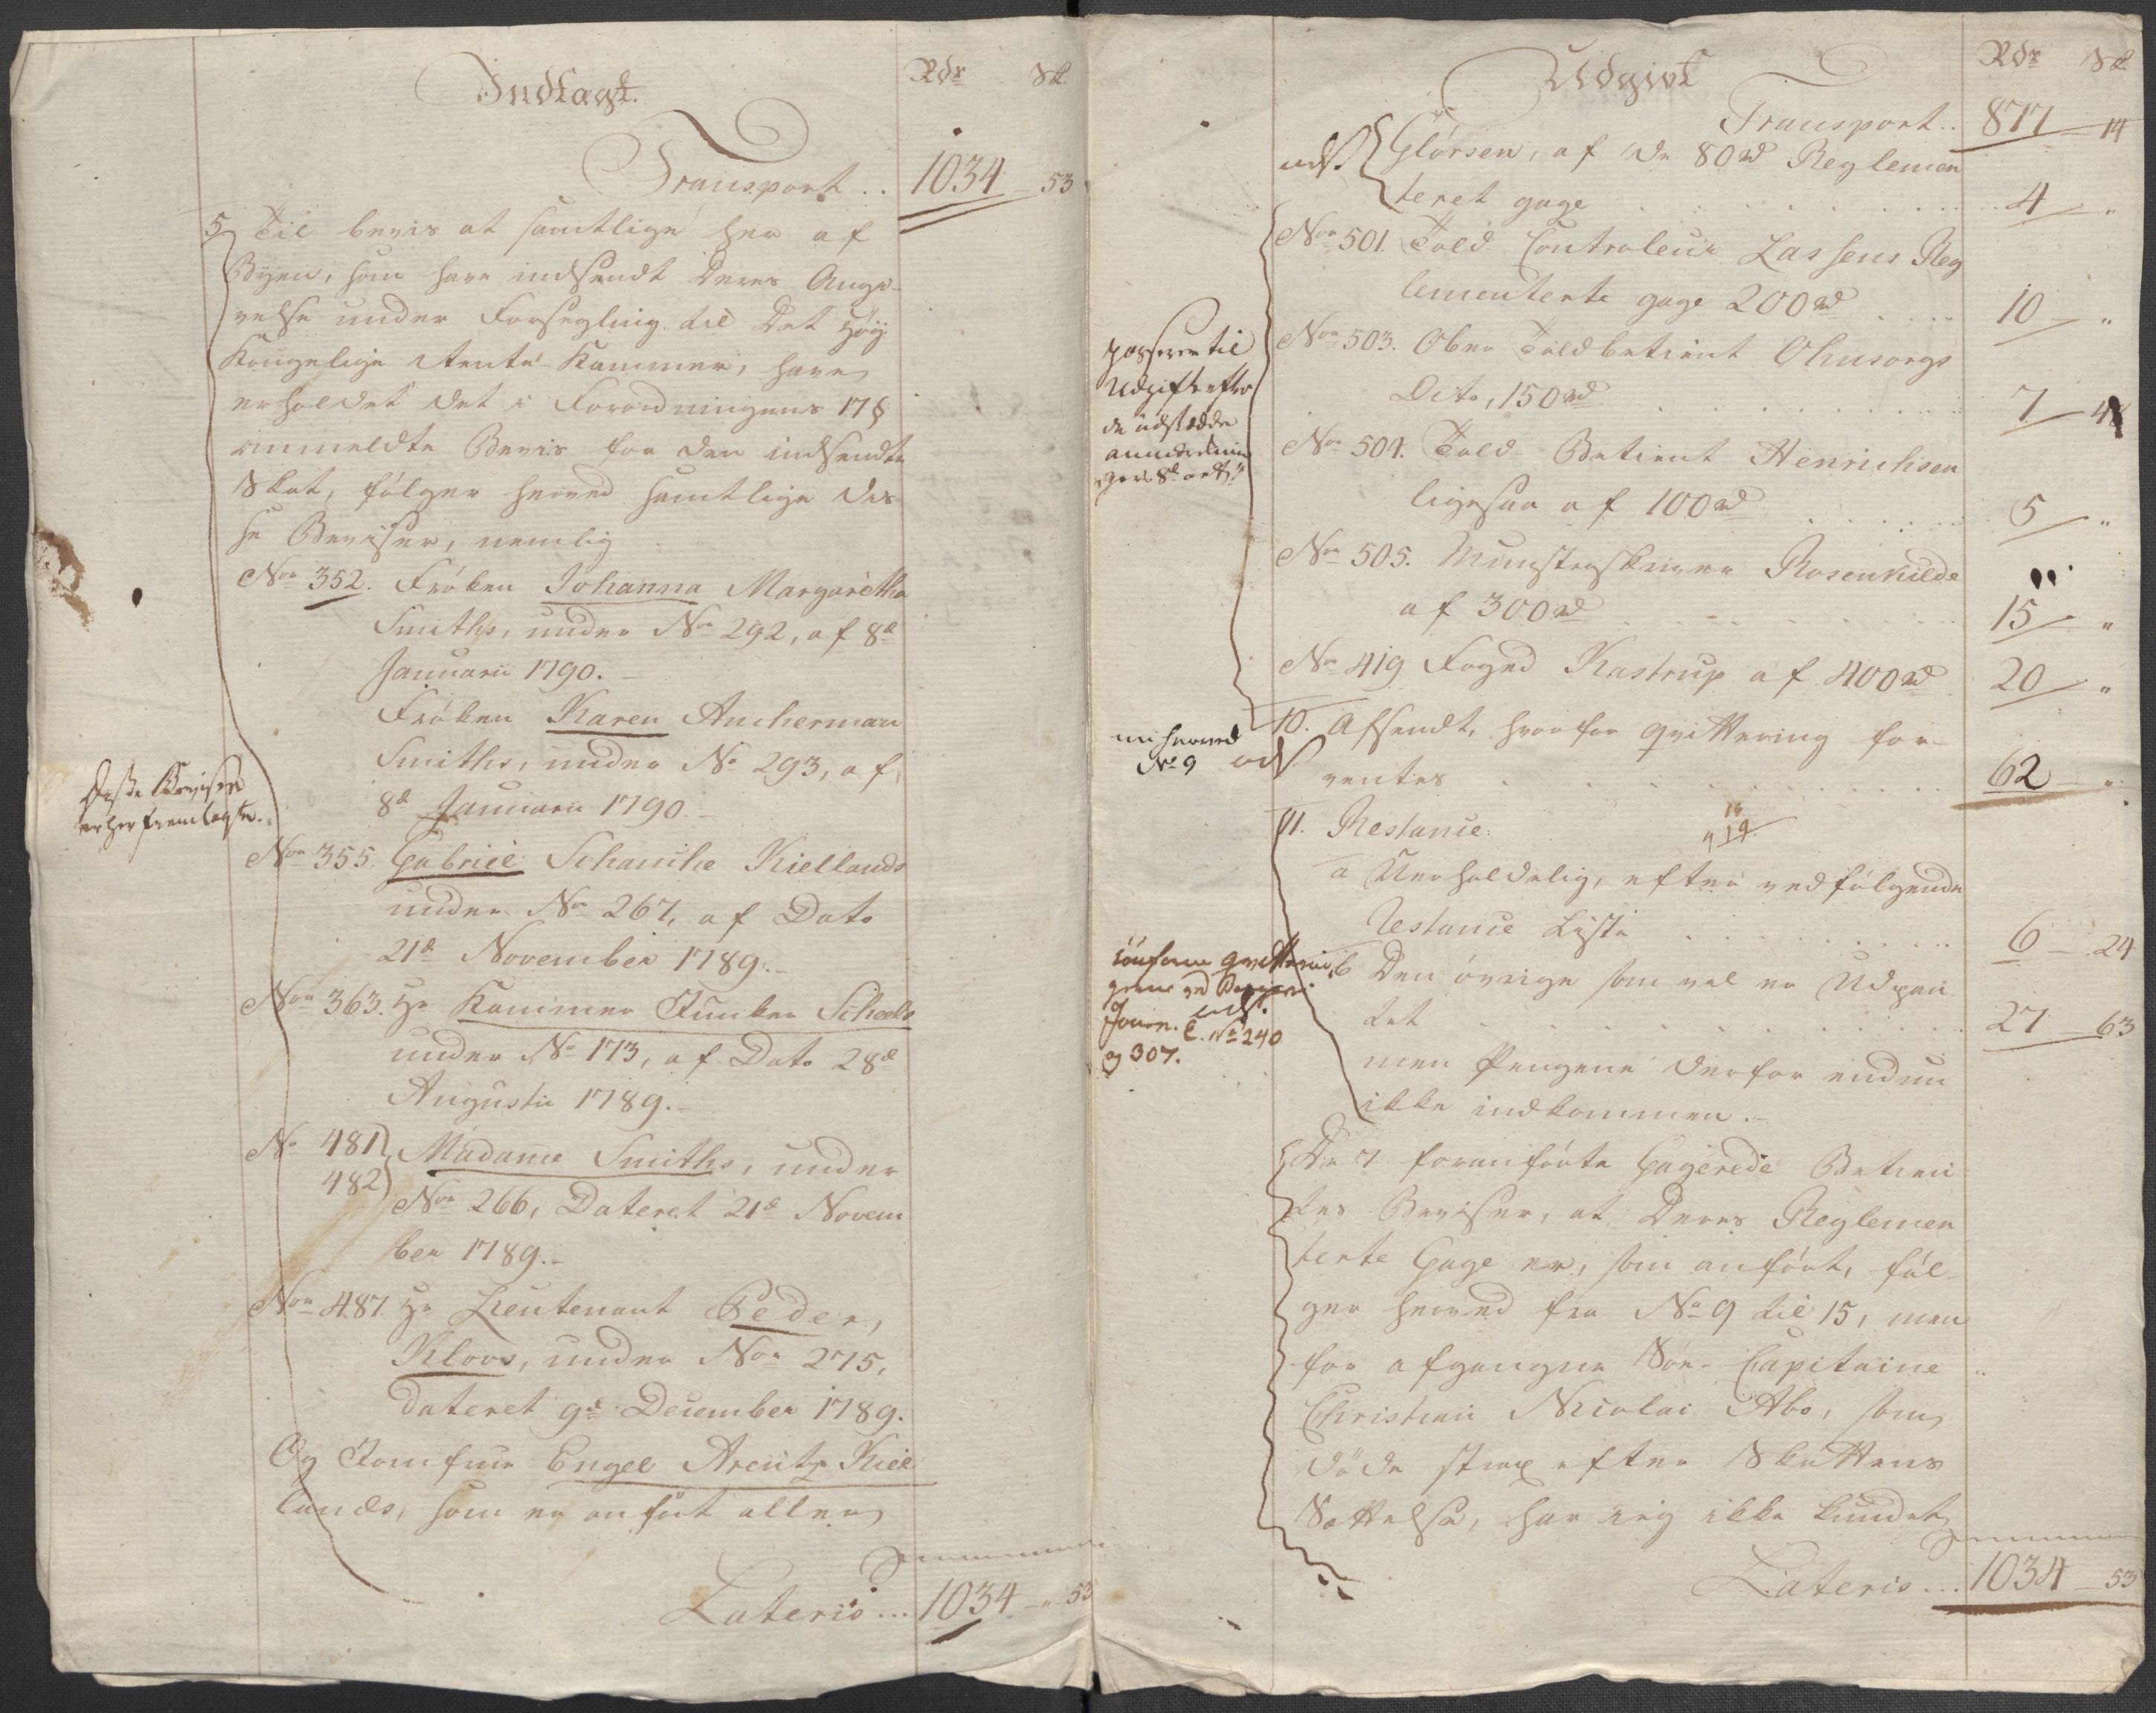 Indtægt.
Rdr Sk.
Transport .. 1034 – 53
5 Til bevis at samtlige her af
Byen, som have indsendt Deres Angi-
velse under Forsegling til Det Høy
Kongelige Rente Kammer, have
erholdet det i Forordningens 17 §
anmeldte Bevis for den indsendte
Skat, følger herved samtlige dis-
se Beviser, nemlig
No 352. Frøken Johanna Margaretha
Smiths, under No 292, af 8de
Januarii 1790. –
Frøken Karen Ancherman
Smiths, under No 293, af
8de Januarii 1790. –
Disse Beviser
er her fremlagte.
No 355. Gabriel Schanche Kiellands
under No 267, af Dato
21de November 1789. –
No 363. Hr Kammer Junker Scheels
under No 173, af Dato 28de
Augustii 1789. –
No 481
482 Madame Smiths, under
No 266, Dateret 21de Novem
ber 1789. –
No 487. Hr Lieutenant Peder
Kloovs, under No 275,
dateret 9de December 1789.
Og Jomfrue Engel Arentz Kiel
lands, som er anført aller
Lateris ... 1034 – " 53
Udgivt
Rdr Sk.
Transport .. 877 – 14
Glørsen, af de 80 rd Reglemen
teret gage . . . 4 – "
No 501. Told Controleur Lassens Reg
lementerte gage 200 rd . . . 10 – "
No 503. Ober Toldbetient Ohnsorgs
Dito, 150 rd . . . 7 – 48
passerer til
Udgift efter
de udstædde
No 504. Told Betient Henrichsen
ligesaa af 100 rd . . . 5 – "
No 505. Mynsterskriver Rosenkilde
af 300 rd . . . 15 – "
No 419 Foged Kastrup af 400 rd 20 – "
10. Afsendt, hvorfor qvittering for-
ventes . . . 62 – "
herved
No 9
11. Restance:
a Uerholdelig, efter vedfølgende
Restance Liste . . . 6 – 24
b Den øvrige som vel er Udpan
tet . . . 27 – 63
men Pengene derfor endnu
ikke indkommen. –
Journ. C. No 240
og 307.
De 7 foranførte Gagerede Betien
tes Beviser, at Deres Reglemen
terte Gage er, som anført, føl-
ger herved fra No 9 til 15, men
for afgangne Søe-Capitaine
Christian Nicolai Abo, som
døde strax efter Skattens
Sættelse, har ieg ikke kundet
Lateris ... 1034 – 53